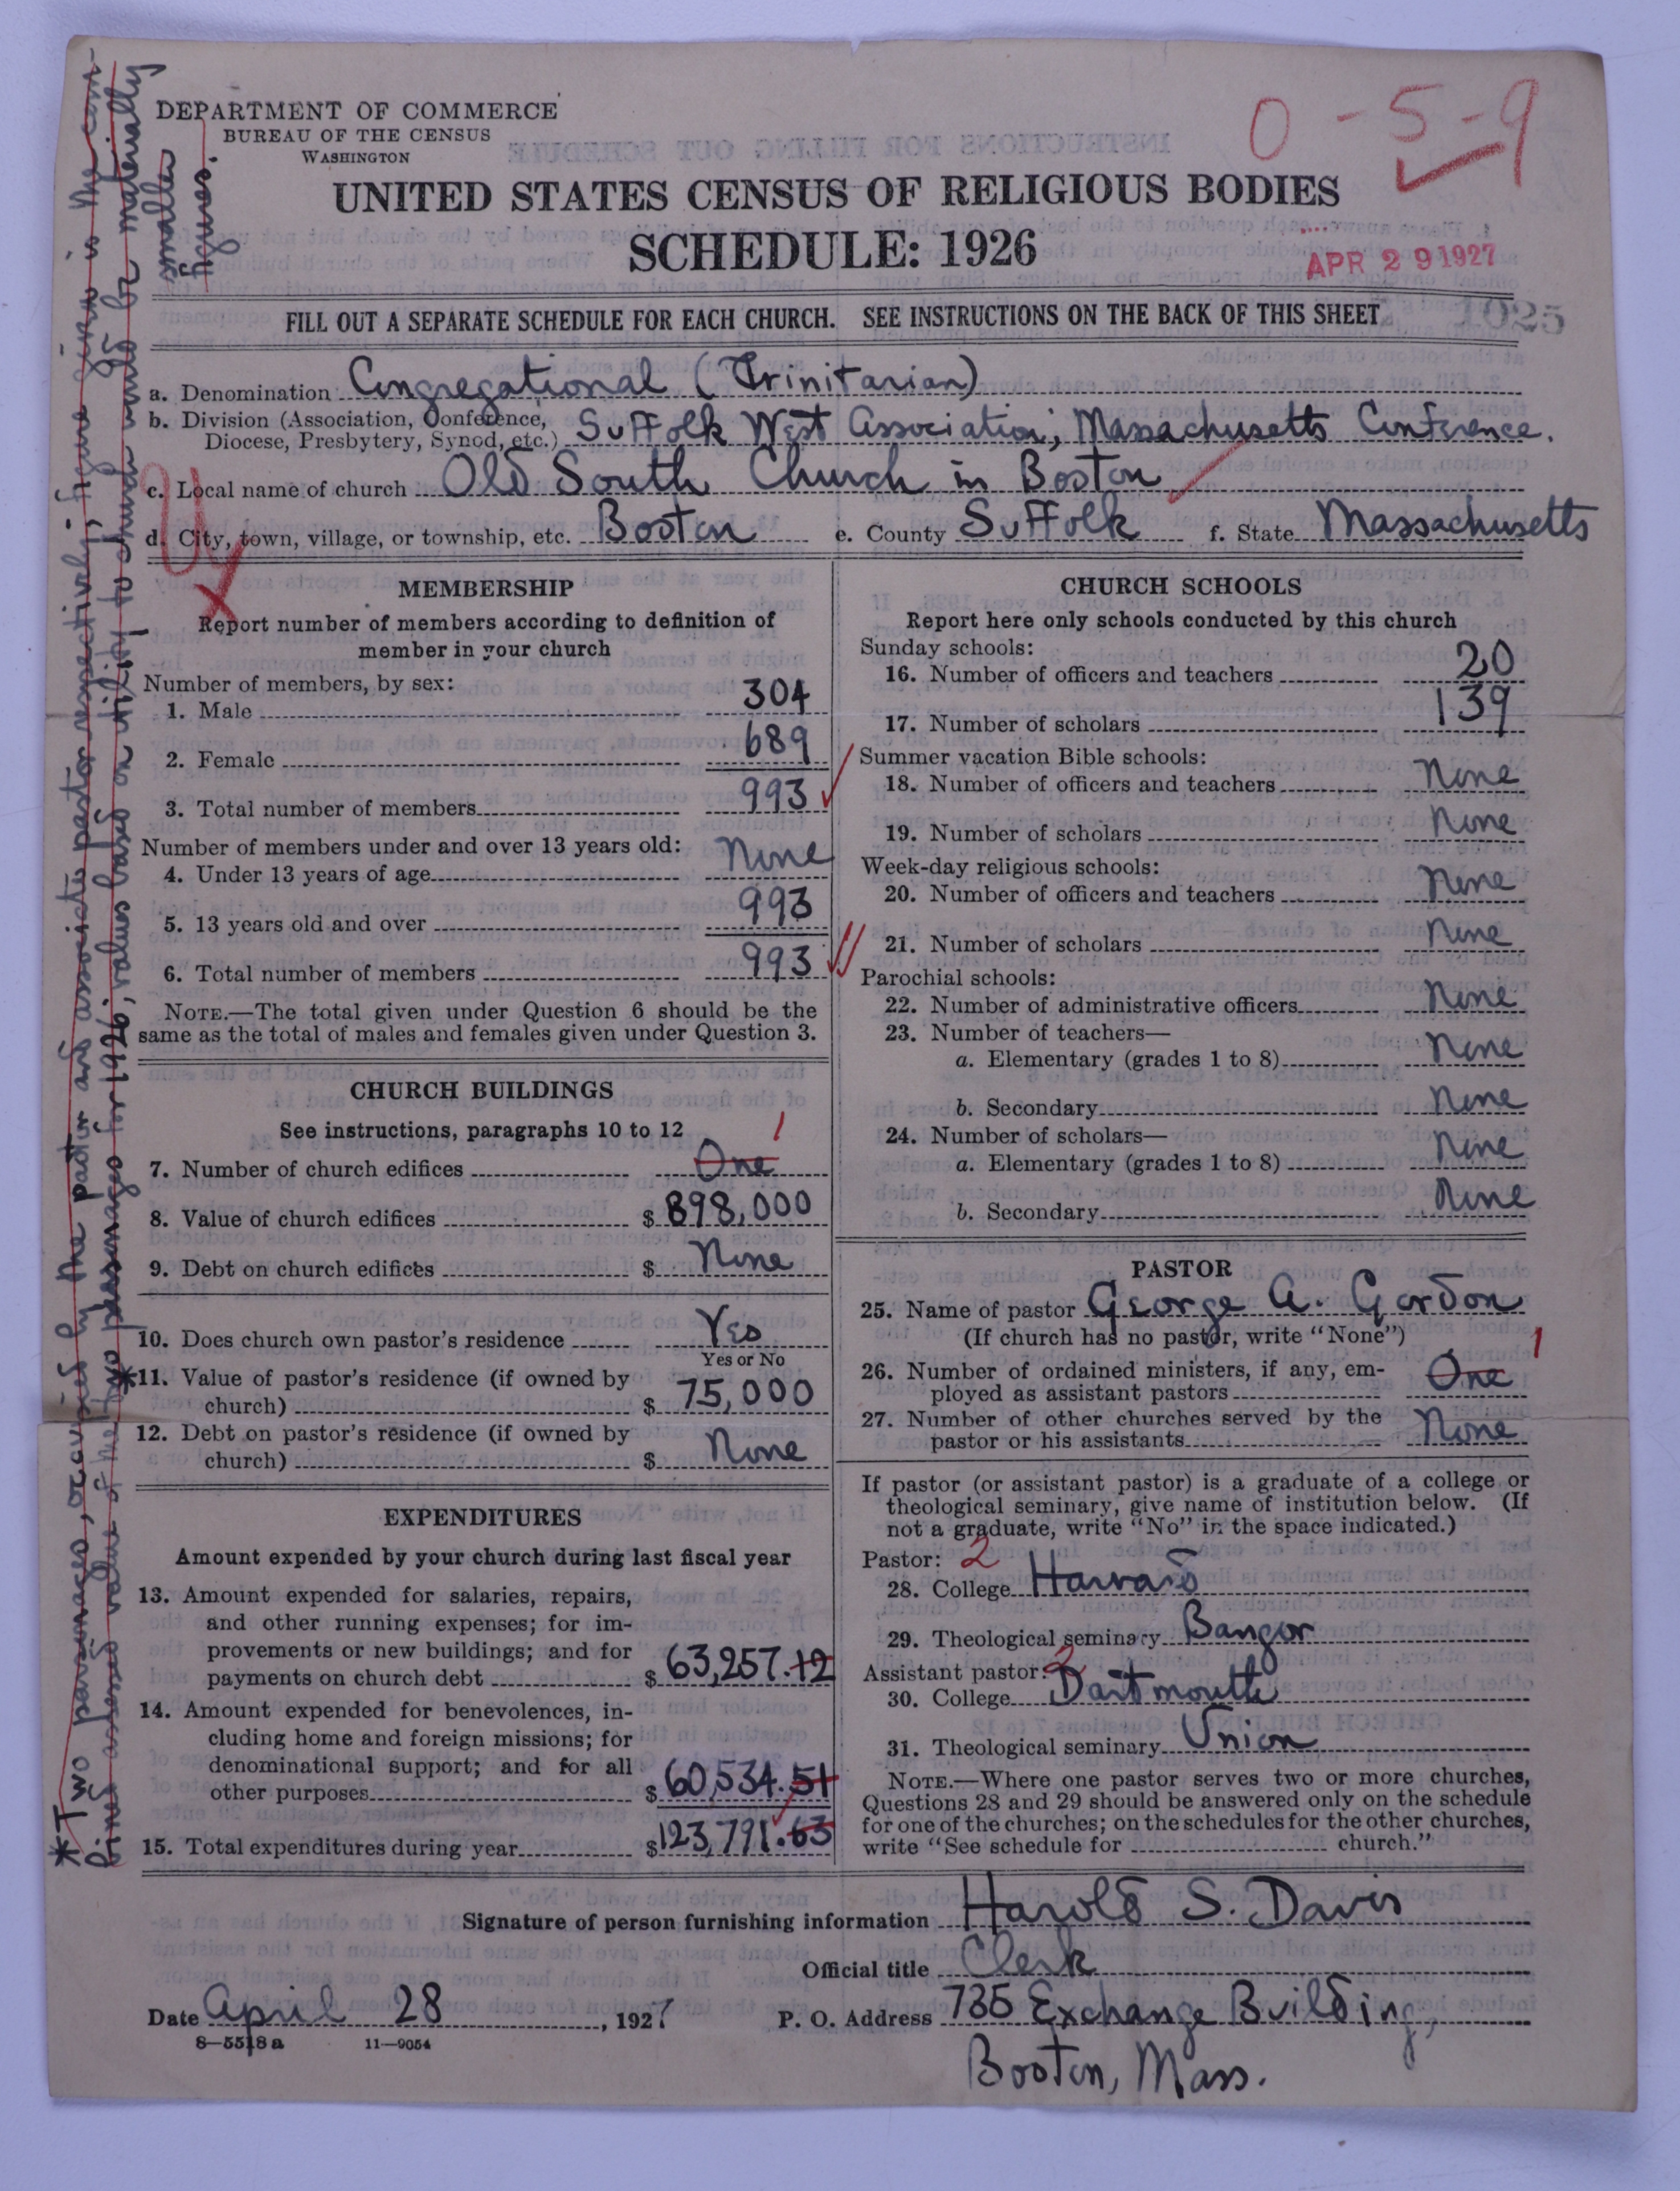 DEPARTMENT OF COMMERCE
BUREAU OF THE CENSUS
WASHINGTON
0-5-9
UNITED STATES CENSUS OF RELIGIOUS BODIES
SCHEDULE: 1926
APR 29 1927
1025
FILL OUT A SEPARATE SCHEDULE FOR EACH CHURCH. SEE INSTRUCTIONS ON THE BACK OF THIS SHEET
a. Denomination Congregational (Trinitarian)
b. Division (Association, Conference,
Diocese, Presbytery, Synod, etc.) Suffolk West Association; Massachusetts Conference.
c. Local name of church Old South Church in Boston
d. City, town, village, or township, etc. Boston e. County Suffolk f. State Massachusetts
MEMBERSHIP
Report number of members according to definition of
member in your church
Number of members, by sex:
1. Male 304
2. Female 689
3. Total number of members 993
Number of members under and over 13 years old:
4. Under 13 years of age None
5. 13 years old and over 993
6. Total number of members 993
NOTE.—The total given under Question 6 should be the
same as the total of males and females given under Question 3.
CHURCH BUILDINGS
See instructions, paragraphs 10 to 12
7. Number of church edifices One 1
8. Value of church edifices $ 898,000
9. Debt on church edifices $ None
10. Does church own pastor's residence Yes
Yes or No
*11. Value of pastor's residence (if owned by
church) $ 75,000
12. Debt on pastor's residence (if owned by
church) $ None
EXPENDITURES
Amount expended by your church during last fiscal year
13. Amount expended for salaries, repairs,
and other running expenses; for im-
provements or new buildings; and for
payments on church debt $ 63,257.12
14. Amount expended for benevolences, in-
cluding home and foreign missions; for
denominational support; and for all
other purposes $ 60,534.51
15. Total expenditures during year $ 123,791.63
CHURCH SCHOOLS
Report here only schools conducted by this church
Sunday schools:
16. Number of officers and teachers 20
17. Number of scholars 139
Summer vacation Bible schools:
18. Number of officers and teachers None
19. Number of scholars None
Week-day religious schools:
20. Number of officers and teachers None
21. Number of scholars None
Parochial schools:
22. Number of administrative officers None
23. Number of teachers—
a. Elementary (grades 1 to 8) None
b. Secondary None
24. Number of scholars—
a. Elementary (grades 1 to 8) None
b. Secondary None
PASTOR
25. Name of pastor George A. Gordon
(If church has no pastor, write "None")
26. Number of ordained ministers, if any, em-
ployed as assistant pastors One 1
27. Number of other churches served by the
pastor or his assistants None
If pastor (or assistant pastor) is a graduate of a college or
theological seminary, give name of institution below. (If
not a graduate, write "No" in the space indicated.)
Pastor: 2
28. College Harvard
29. Theological seminary Bangor
Assistant pastor: 2
30. College Dartmouth
31. Theological seminary Union
NOTE.—Where one pastor serves two or more churches,
Questions 28 and 29 should be answered only on the schedule
for one of the churches; on the schedules for the other churches,
write "See schedule for church."
Signature of person furnishing information Harold S. Davis
Official title Clerk
Date April 28, 1927 P. O. Address 735 Exchange Building,
8—5518a 11—9054
Boston, Mass.
*Two parsonages, occupied by the pastor and associate pastor respectively; figure given is the com-
bined assessed value of the two parsonages for 1926; values based on utility to church would be materially
smaller
figures.